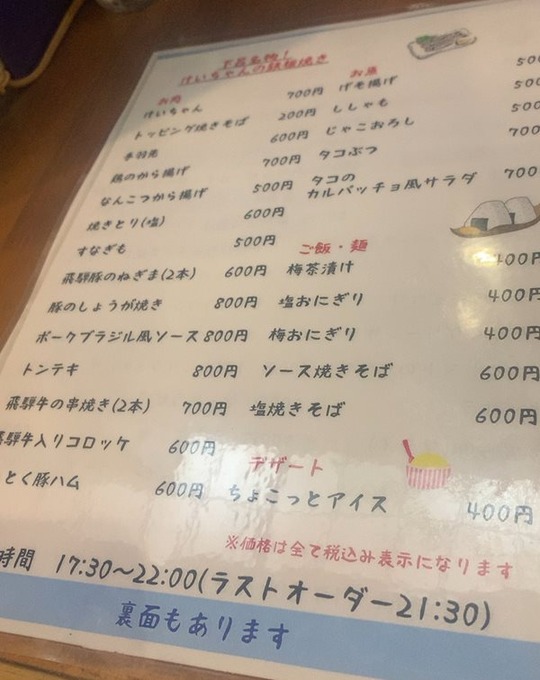 下呂名物!
けいちゃんの鉄板焼き
お肉
けいちゃん 700円
トッピング焼きそば 200円
手羽先 600円
鶏のから揚げ 700円
なんこつから揚げ 500円
焼きとり(塩) 600円
すなぎも 500円
飛騨豚のねぎま(2本) 600円
豚のしょうが焼き 800円
ポークブラジル風ソース 800円
トンテキ 800円
飛騨牛の串焼き(2本) 700円
飛騨牛入りコロッケ 600円
とく豚ハム 600円
お魚
げそ揚げ 500
ししゃも 500
じゃこおろし 500
タコぶつ 700
タコの
カルパッチョ風サラダ 700
ご飯・麺
梅茶漬け 400円
塩おにぎり 400円
梅おにぎり 400円
ソース焼きそば 600円
塩焼きそば 600円
デザート
ちょこっとアイス 400円
※価格は全て税込み表示になります
時間 17:30～22:00(ラストオーダー21:30)
裏面もあります